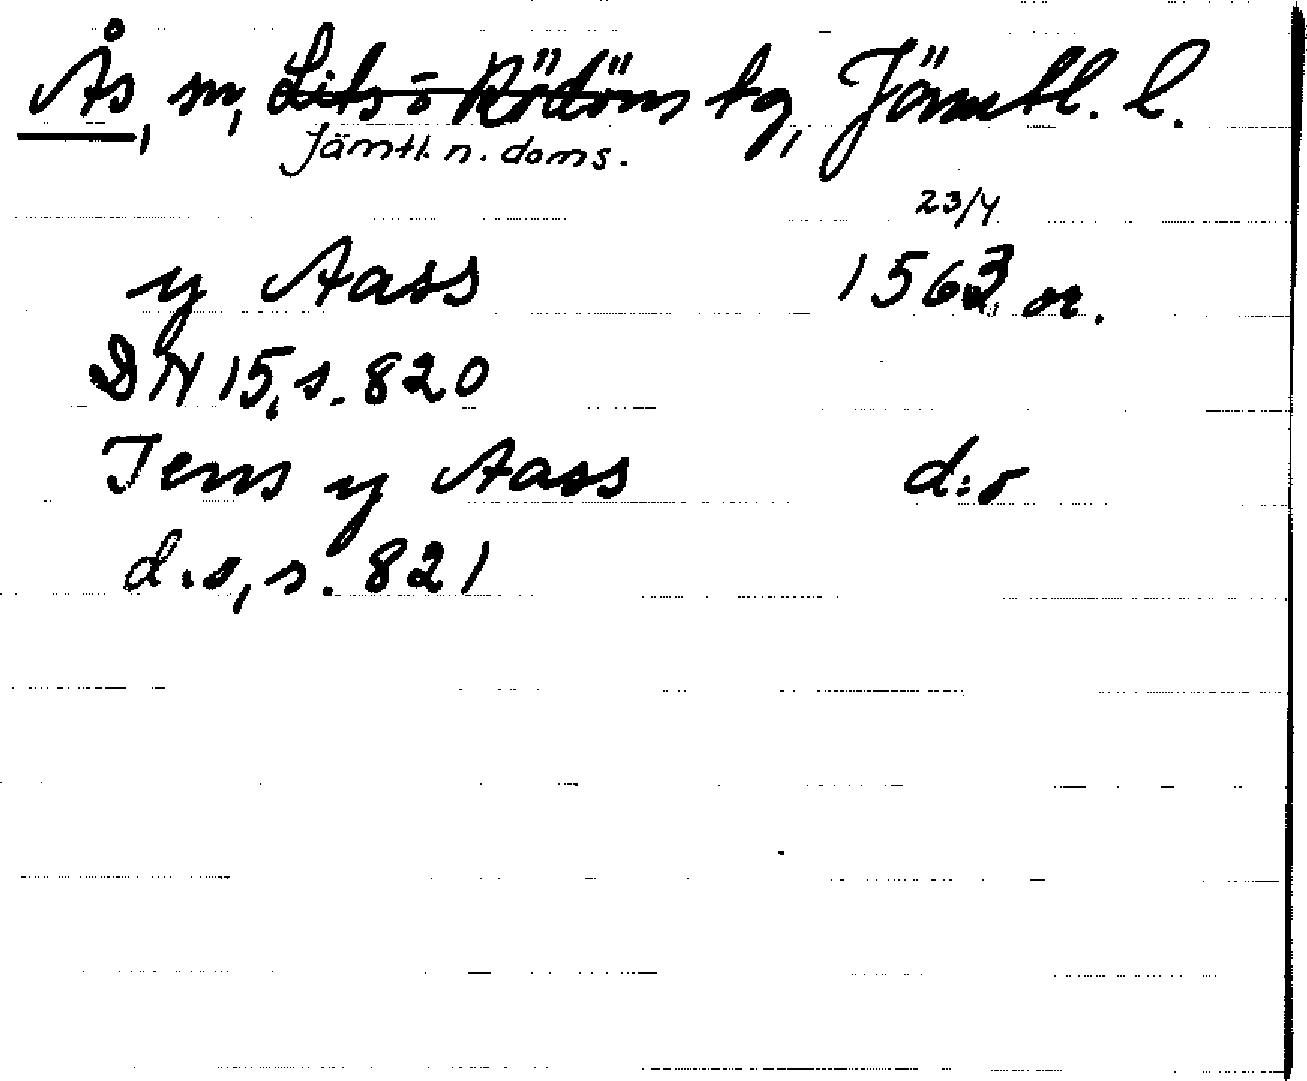 Ås, sn, Lits o Rödöns tg, Jämtl. l.
Jämtl. n. doms.
23/4
y Aass 1563 or.
DN 15, s. 820
Jens y Aass d:o
d.s, s. 821